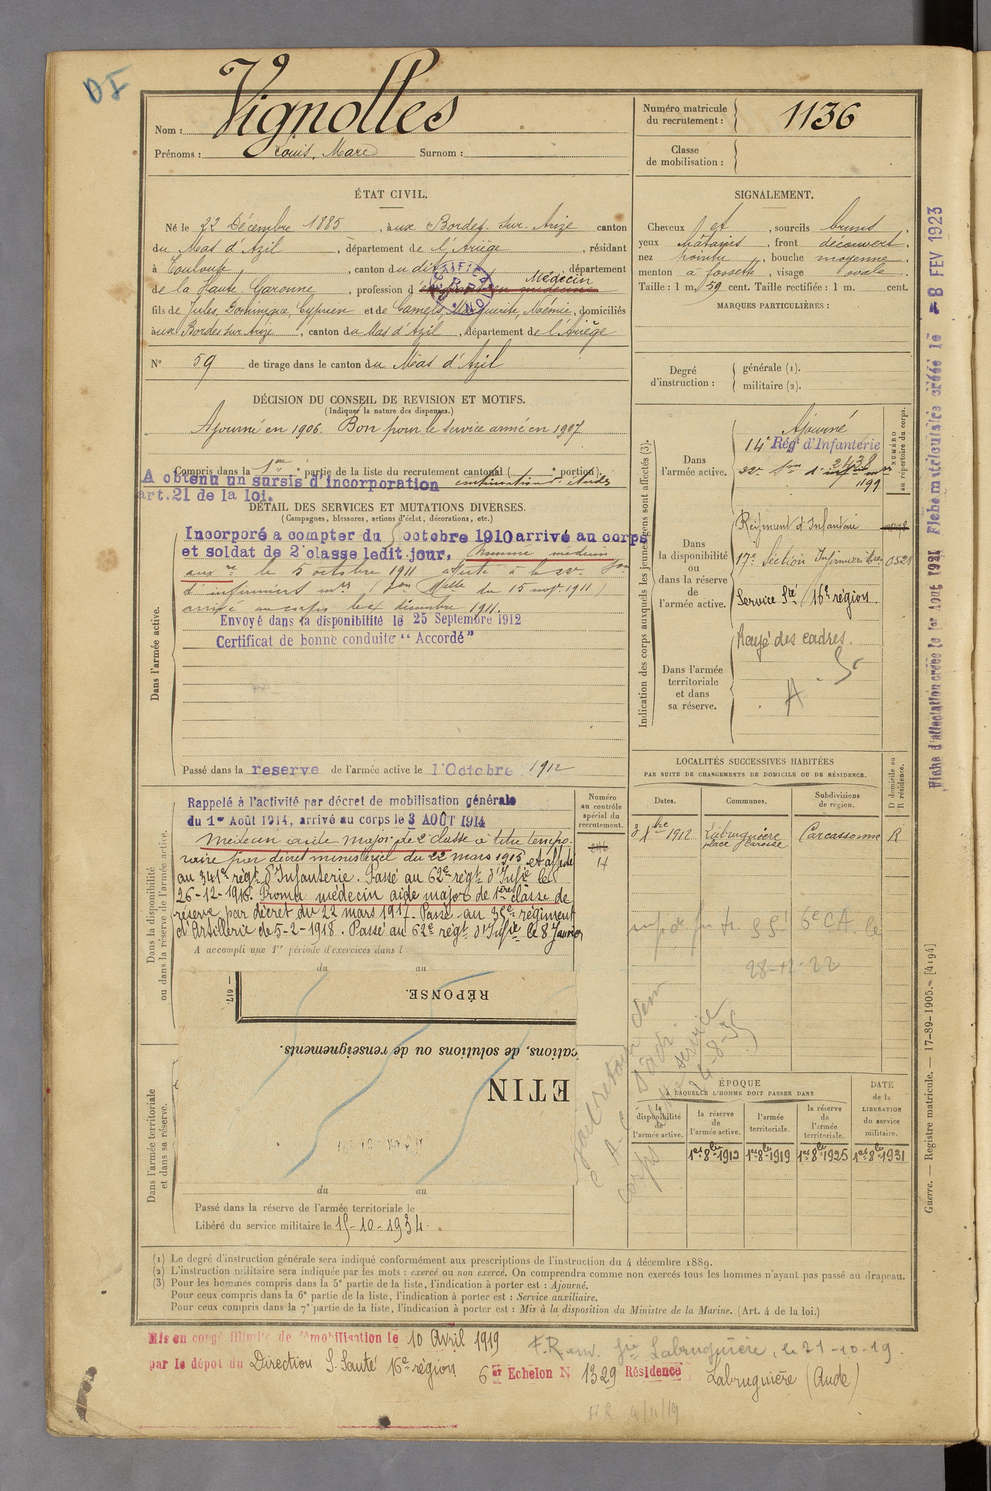 DI
Nom : Vignolles
Prénoms : Louis, Marc Surnom :
Numéro matricule du recrutement : 1136
Classe de mobilisation :
ÉTAT CIVIL.
Né le 22 Décembre 1885, aux Bordes-sur-Arize canton
du Mas d'Azil, département de l'Ariège, résidant
à Toulouse, canton du dit, département
de la Haute Garonne, profession d Médecin
fils de Jules, Dominique, Cyprien et de Camels, Marguerite, Noémie, domiciliés
aux Bordes sur Arize, canton du Mas d'Azil, département de l'Ariège
N° 59 de tirage dans le canton du Mas d'Azil
SIGNALEMENT.
Cheveux jet, sourcils bruns
yeux châtains, front découvert,
nez pointu, bouche moyenne
menton à fossette, visage ovale
Taille : 1 m. 59 cent. Taille rectifiée : 1 m. cent.
MARQUES PARTICULIÈRES :
Degré d'instruction : générale (1). militaire (2).
DÉCISION DU CONSEIL DE REVISION ET MOTIFS.
(Indiquer la nature des dispenses.)
Ajourné en 1906. Bon pour le service armé en 1907
Compris dans la 1re partie de la liste du recrutement cantonal ( e portion).
A obtenu un sursis d'incorporation continuation d'études
art. 21 de la loi.
DÉTAIL DES SERVICES ET MUTATIONS DIVERSES.
(Campagnes, blessures, actions d'éclat, décorations, etc.)
Dans l'armée active.
Incorporé a compter du 5 octobre 1910 arrivé au corps
et soldat de 2e classe ledit jour. Nommé médecin
auxre le 5 octobre 1911 affecté à la 22e Son
d'infirmiers mres (Son Mlle du 15 nov. 1911)
arrivé au corps le décembre 1911.
Envoyé dans la disponibilité le 25 Septembre 1912
Certificat de bonne conduite "Accordé"
Passé dans la reserve de l'armée active le 1er Octobre 1912
Indication des corps auxquels les jeunes gens sont affectés (3).
NUMÉRO au répertoire du corps.
Dans l'armée active.
Ajourné
14e Régt d'Infanterie
1199
Dans la disponibilité ou dans la réserve de l'armée active.
Régiment d'Infanterie
17e Section Infirmiers 0521
Service Sté 16e région
Dans l'armée territoriale et dans sa réserve.
Rayé des cadres.
A
LOCALITÉS SUCCESSIVES HABITÉES
PAR SUITE DE CHANGEMENTS DE DOMICILE OU DE RÉSIDENCE.
Dates. Communes. Subdivisions de région. D domicile ou R résidence.
1912 Labruguière Carcassonne R
6e CA
28-12-22
Dans la disponibilité ou dans la réserve de l'armée active.
Numéro au contrôle spécial du recrutement.
14
Rappelé à l'activité par décret de mobilisation générale
du 1er Août 1914, arrivé au corps le 3 AOÛT 1914
Médecin aide major de 2e classe à titre tempo-
raire par décret ministériel du 22 mars 1915 et affecté
au 341e régt d'Infanterie. Passé au 62e régt d'Infie le
26-12-1916. Promu médecin aide major de 1ère classe de
réserve par décret du 22 mars 1917. Passé au 35e régiment
d'Artillerie le 5-2-1918. Passé au 62e régt d'Infie le 8 Janvier
A accompli une 1re période d'exercices dans l
du au
RÉPONSE.
ications, de solutions ou de renseignements.
ETIN
Dans l'armée territoriale et dans sa réserve.
du au
Passé dans la réserve de l'armée territoriale le
Libéré du service militaire le 15-10-1934.
ÉPOQUE
À LAQUELLE L'HOMME DOIT PASSER DANS
DATE de la LIBÉRATION DU SERVICE militaire.
la disponibilité de l'armée active. la réserve de l'armée active. l'armée territoriale. la réserve de l'armée territoriale.
1er 8bre 1912 1er 8bre 1919 1er 8bre 1925 1er 8bre 1931
(1) Le degré d'instruction générale sera indiqué conformément aux prescriptions de l'instruction du 4 décembre 1889.
(2) L'instruction militaire sera indiquée par les mots : exercé ou non exercé. On comprendra comme non exercés tous les hommes n'ayant pas passé au drapeau.
(3) Pour les hommes compris dans la 5e partie de la liste, l'indication à porter est : Ajourné.
Pour ceux compris dans la 6e partie de la liste, l'indication à porter est : Service auxiliaire.
Pour ceux compris dans la 7e partie de la liste, l'indication à porter est : Mis à la disposition du Ministre de la Marine. (Art. 4 de la loi.)
Mis en congé illimité de démobilisation le 10 Avril 1919
par le dépôt du Direction S. Santé 16e région 6e Echelon N° 1329 Résidence Labruguière (Aude)
Labruguière, le 21-10-19.
4/11/19
Fiche d'affectation créée le 1er Aout 1921 Fiche matriculaire créée le -8 FEV 1923
Guerre. — Registre matricule. — 17-89-1905. [4194]